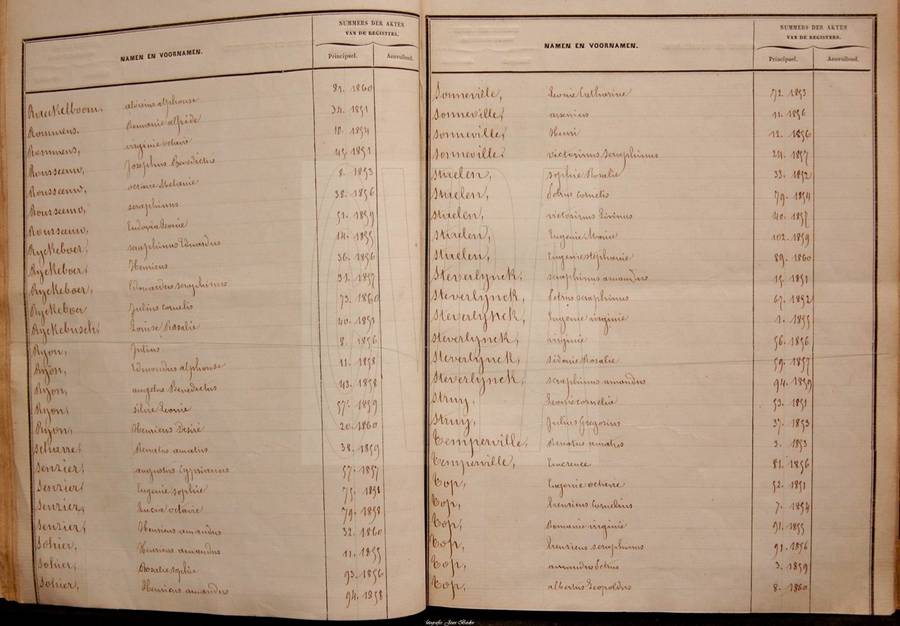 NAMEN EN VOORNAMEN.
SUMMERS DER AKTEN
VAN DE REGISTERS.
Principael. Aenvullend.
Raeckelboom, aloisius alphonse 81. 1860
Rommens, Romanie alfrède 34. 1851
Rommens, virginie octavie 10. 1854
Rousseeuw, Josephus Benedictus 45. 1851
Rousseeuw, octavie Melanie 8. 1853
Rousseeuw, seraphinus 38. 1856
Rousseeuw, Eudoxia Leonie 51. 1859
Ryckeboer, seraphinus Edmardus 14. 1855
Ryckeboer, Henricus 36. 1856
Ryckeboer, Edouardus seraphinus 31. 1857
Ryckeboer Julius cornelis 73. 1860
Ryckebusch, Louise Rosalie 40. 1851
Ryon, Julius 8. 1856
Ryon, Edmondus alphonse 11. 1858
Ryon, angelus Benedictus 43. 1858
Ryon, Silvie Leonie 57. 1859
Ryon, Henricus Desiré 20. 1860
Scharre, Renatus amatus 38. 1859
Senzier, augustus Cyprianus 57. 1857
Senzier, Eugenie sophie 75. 1851
Senzier, Lucia octavie 79. 1858
Senzier, Henricus amandus 32. 1860
Sohier, Henricus amandus 11. 1855
Sohier, Rosalie sophie 93. 1856
Sohier, Henricus amandus 94. 1858
NAMEN EN VOORNAMEN.
SUMMERS DER AKTEN
VAN DE REGISTERS.
Principael. Aenvullend.
Sonneville, Leonie Catharine 72. 1853
Sonneville, arsenius 11. 1856
Sonneville, Henri 12. 1856
Sonneville, victorinus seraphinus 24. 1857
Staelen, sophie Rosalie 33. 1852
Staelen, Petrus cornelis 79. 1854
Staelen, victorinus Livinus 40. 1857
Staelen, Eugenie Marie 102. 1859
Staelen, Eugenie stephanie 89. 1860
Steverlynck, seraphinus amandus 15. 1851
Steverlynck, Petrus seraphinus 67. 1852
Steverlynck, Eugenie virginie 1. 1855
Steverlynck, virginie 56. 1856
Steverlynck, Sidonie Rosalie 59. 1857
Steverlynck, seraphinus amandus 94. 1859
Struy, Leonie cornelia 53. 1851
Struy, Julius Gregorius 37. 1853
Temperville, Renatus amatus 3. 1853
Temperville, Emerence 81. 1856
Top, Eugenie octavie 52. 1851
Top, henricus Cornelius 7. 1854
Top, Romanie virginie 91. 1855
Top, henricus seraphinus 91. 1856
Top, amandus Petrus 3. 1859
Top, albertus Leopoldus 8. 1860
fotografie Joan Backx